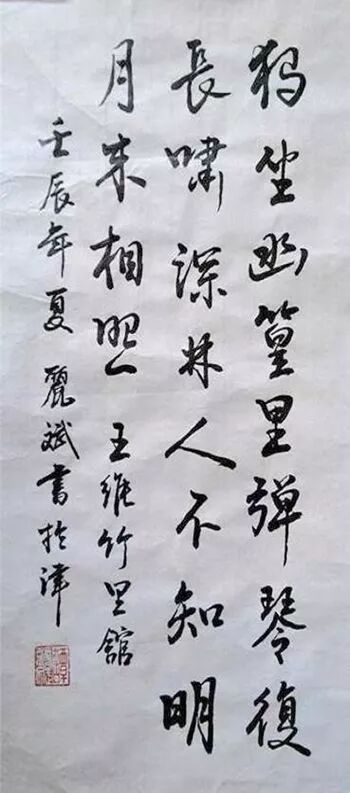 独坐幽篁里弹琴復
長嘯深林人不知明
月来相照 王維竹里館
壬辰年夏 麗斌書於津